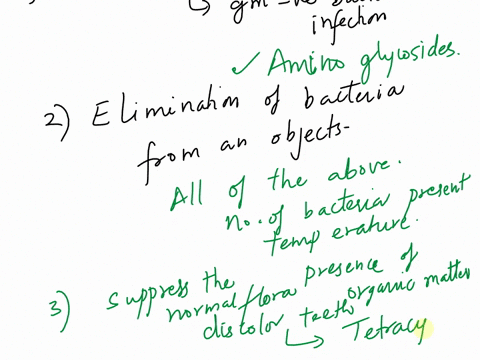 ↳ gm -ve
infection
✓ Amino glycosides.
2) Elimination of bacteria
from an objects-
All of the above.
no. of bacteria present
temp erature.
presence of
organic matter
3) suppress the
normal flora
discolor teeth
↳ Tetracy